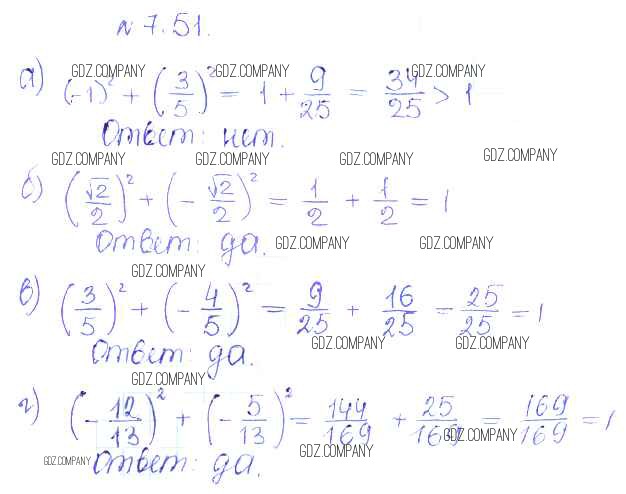 № 7.51.
а) (-1)² + (3/5)² = 1 + 9/25 = 34/25 > 1
Ответ: нет.
б) (√2/2)² + (-√2/2)² = 1/2 + 1/2 = 1
Ответ: да.
в) (3/5)² + (-4/5)² = 9/25 + 16/25 = 25/25 = 1
Ответ: да.
г) (-12/13)² + (-5/13)² = 144/169 + 25/169 = 169/169 = 1
Ответ: да.
GDZ.COMPANY GDZ.COMPANY GDZ.COMPANY
GDZ.COMPANY GDZ.COMPANY GDZ.COMPANY GDZ.COMPANY
GDZ.COMPANY GDZ.COMPANY
GDZ.COMPANY
GDZ.COMPANY GDZ.COMPANY
GDZ.COMPANY
GDZ.COMPANY
GDZ.COMPANY GDZ.COMPANY